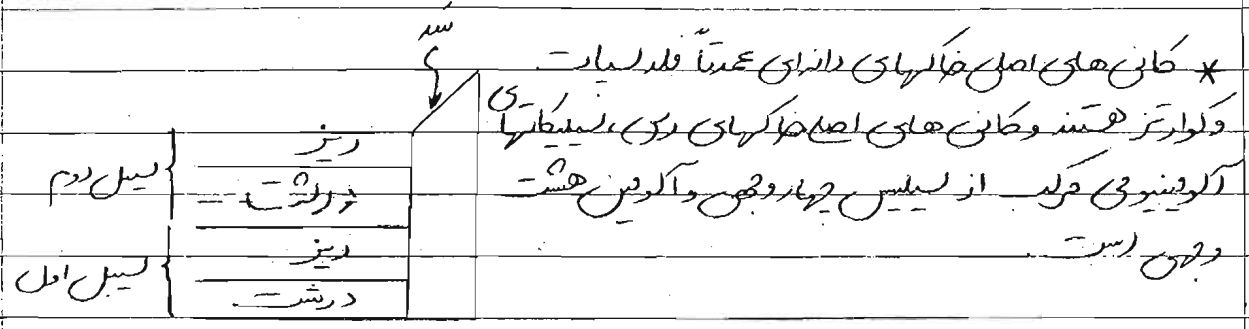 * کانی های اصلی خاکهای دانه‌ای عمدتاً فلدسپات
وکوارتز هستند وکانی های اصلی خاکهای رسی، سیلیکاتهای
آلومینیومی مرکب از سیلیس چهاروجهی وآلومین هشت
وجهی است
سد
ریز
درشت
سیل دوم
ریز
درشت
سیل اول